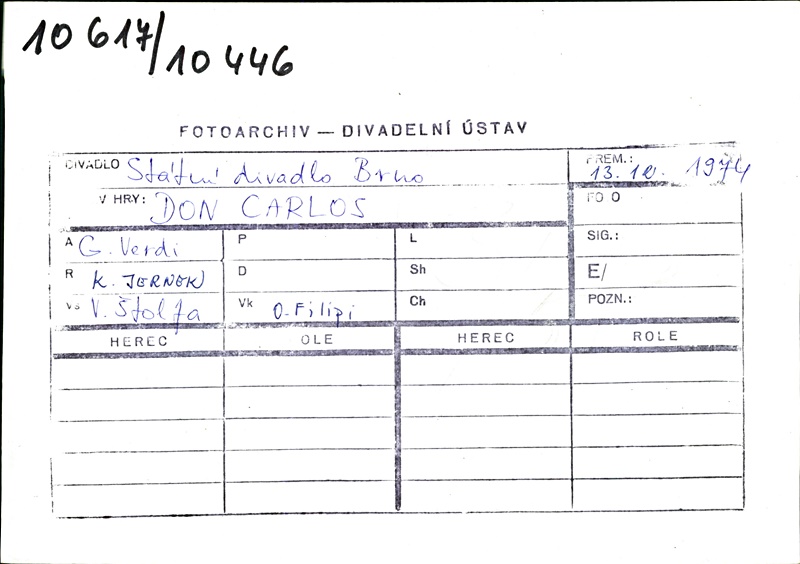 10 617/10 446
FOTOARCHIV — DIVADELNÍ ÚSTAV
DIVADLO Státní divadlo Brno
PREM.: 13. 12. 1974
V HRY: DON CARLOS
FO O
A G. Verdi P L SIG.:
R K. JERNEK D Sh E/
Vs V. Štolfa Vk O. Filipi Ch POZN.:
HEREC OLE HEREC ROLE